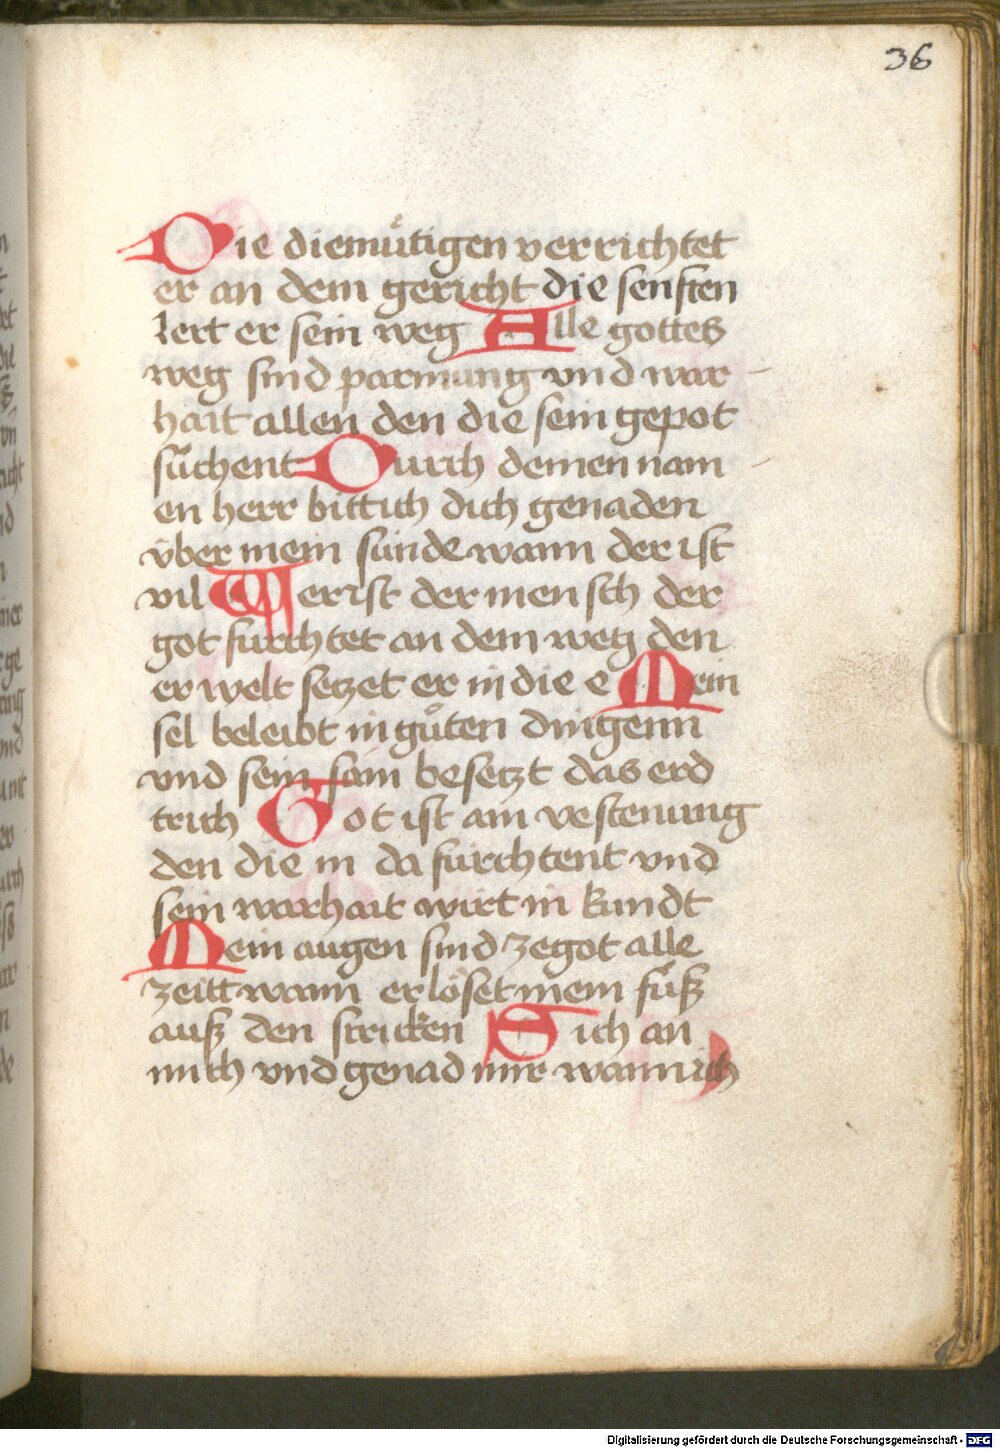 36
Die diemuͤtigen verrichtet
er an dem gericht die senften
lert er sein weg Alle gottes
weg sind parmung vnd war
hait allen den die sein gepot
suͤchent Durch deinen nam
en herr bitt ich dich genaden
vͤber mein sünde wann der ist
vil Wer ist der mensch der
got furchtet an dem weg den
er welt setzet er in die e Mein
sel beleibt in guͦten dingenn
vnd sein sam besetzt das erd
trich Got ist ain vestenung
den die in da furchtent vnd
sein warhait wirt in kundt
Mein augen sind ze got alle
zeitt wann er löset mein fuͤß
auß den stricken Sich an
mich vnd genad mir wann ich
Digitalisierung gefördert durch die Deutsche Forschungsgemeinschaft - DFG